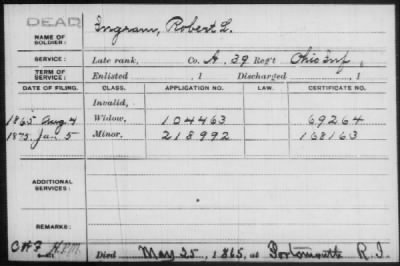 DEAD
NAME OF SOLDIER: Ingram, Robert L.
SERVICE: Late rank, Co. A, 39 Reg't Ohio Inf.
TERM OF SERVICE: Enlisted , 1 Discharged , 1
DATE OF FILING. CLASS. APPLICATION NO. LAW. CERTIFICATE NO.
Invalid,
1865 Aug 7 Widow, 104463 69264
1875 Jan 5 Minor, 218992 168163
ADDITIONAL SERVICES:
REMARKS:
Died May 25, 1865, at Portsmouth R. I.